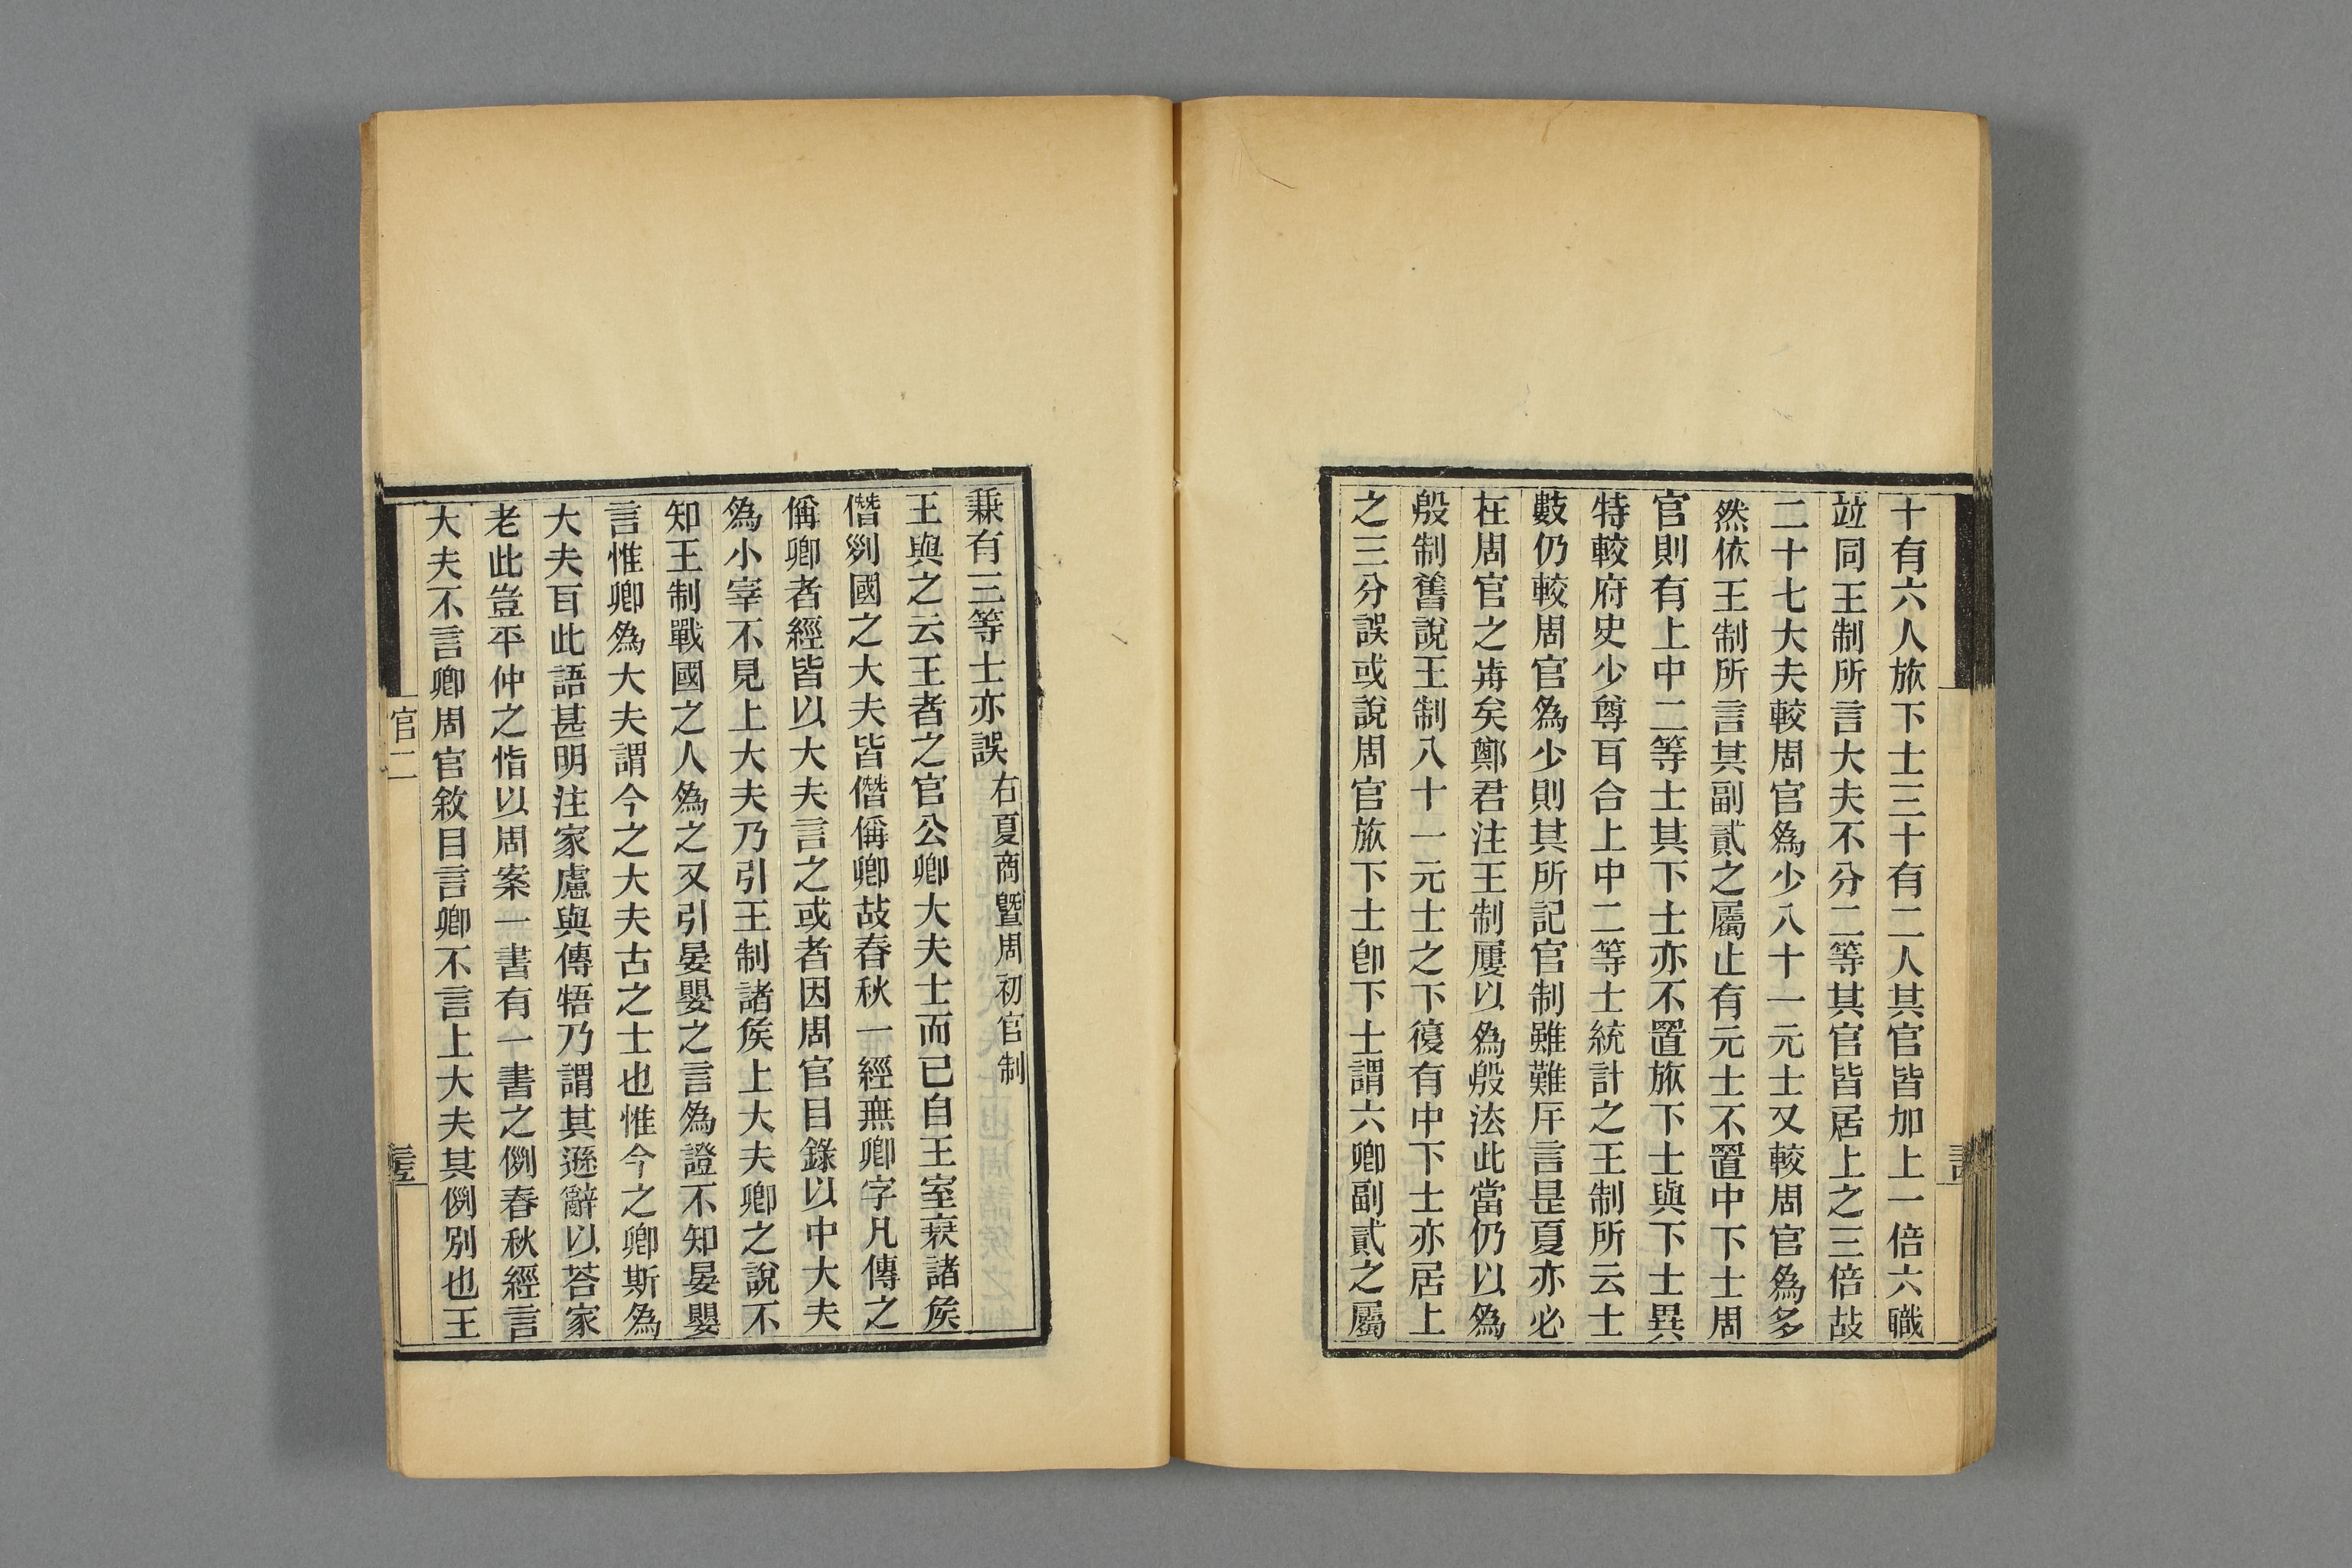 十有六人旅下士三十有二人其官皆加上一倍六職
竝同王制所言大夫不分二等其官皆居上之三倍故
二十七大夫較周官爲少八十一元士又較周官爲多
然依王制所言其副貳之屬止有元士不置中下士周
官則有上中二等士其下士亦不置旅下士與下士異
特較府史少尊耳合上中二等士統計之王制所云士
數仍較周官爲少則其所記官制雖難厈言是夏亦必
在周官之歬矣鄭君注王制屢以爲殷法此當仍以爲
殷制舊說王制八十一元士之下復有中下士亦居上
之三分誤或說周官旅下士卽下士謂六卿副貳之屬
兼有三等士亦誤右夏商曁周初官制
王與之云王者之官公卿大夫士而已自王室衰諸矦
僭列國之大夫皆僭偁卿故春秋一經無卿字凡傳之
偁卿者經皆以大夫言之或者因周官目錄以中大夫
爲小宰不見上大夫乃引王制諸矦上大夫卿之說不
知王制戰國之人爲之又引晏嬰之言爲證不知晏嬰
言惟卿爲大夫謂今之大夫古之士也惟今之卿斯爲
大夫耳此語甚明注家慮與傳牾乃謂其遜辭以荅家
老此豈平仲之恉以周案一書有一書之例春秋經言
大夫不言卿周官敘目言卿不言上大夫其例別也王
官二